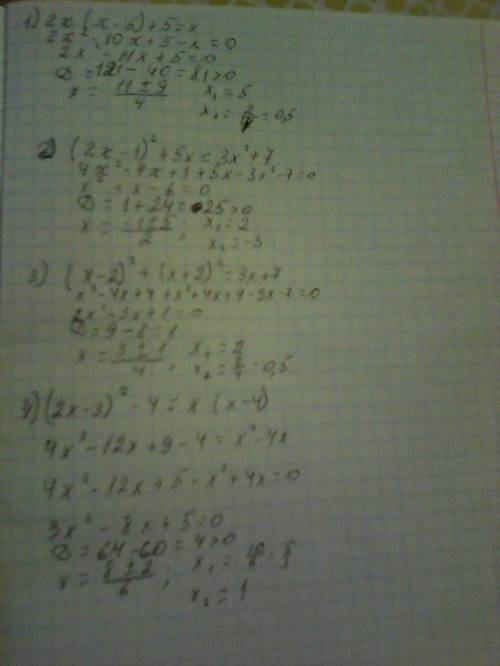 1) 2x (x-5)+5=x
2x²-10x+5-x=0
2x²-11x+5=0
D=121-40=81>0
x=(11±9)/4 x₁=5
x₂=2/4=0,5
2) (2x-1)²+5x=3x²+7
4x²-4x+1+5x-3x²-7=0
x²+x-6=0
D=1+24=25>0
x=(-1±5)/2; x₁=2
x₂=-3
3) (x-2)²+(x+2)²=3x+7
x²-4x+4+x²+4x+4-3x-7=0
2x²-3x+1=0
D=9-8=1
x=(3±1)/4, x₁=2
x₂=2/4=0,5
4) (2x-3)²-4=x (x-4)
4x²-12x+9-4=x²-4x
4x²-12x+5-x²+4x=0
3x²-8x+5=0
D=64-60=4>0
x=(8±2)/6; x₁=10/6=5/3
x₂=1